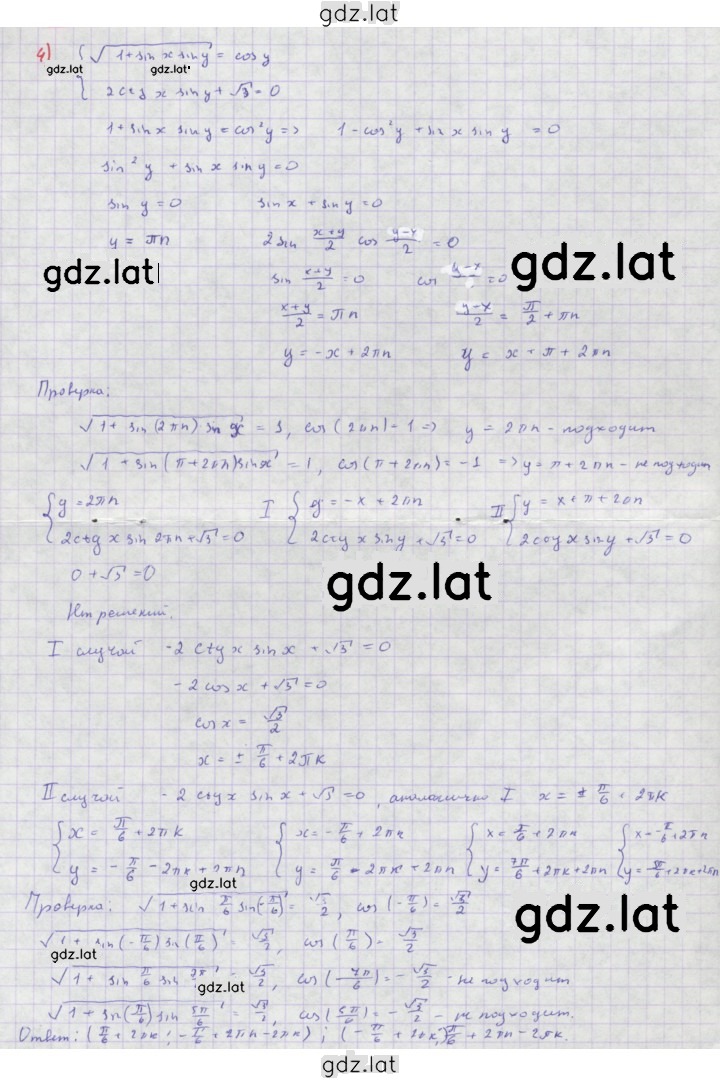 gdz.lat
4) { √(1+sin x sin y) = cos y
gdz.lat gdz.lat
2ctg x sin y + √3 = 0
1+sin x sin y = cos²y => 1-cos²y + sin x sin y = 0
sin²y + sin x sin y = 0
sin y = 0 sin x + sin y = 0
y = πn 2 sin (x+y)/2 cos (y-x)/2 = 0
gdz.lat gdz.lat
sin (x+y)/2 = 0 cos (y-x)/ = 0
(x+y)/2 = πn (y-x)/2 = π/2 + πn
y = -x + 2πn y = x + π + 2πn
Проверка:
√(1+ sin(2πn) sin x) = 1, cos(2πn) = 1 => y = 2πn - подходит
√(1 + sin(π+2πn) sin x) = 1, cos(π+2πn) = -1 => y = π + 2πn - не подходит
{ y = 2πn I { y = -x + 2πn II { y = x + π + 2πn
2ctg x sin 2πn + √3 = 0 2ctg x sin y + √3 = 0 2ctg x sin y + √3 = 0
0 + √3 = 0
gdz.lat
Нет решений.
I случай -2 ctg x sin x + √3 = 0
-2 cos x + √3 = 0
cos x = √3/2
x = ± π/6 + 2πk
II случай -2 ctg x sin x + √3 = 0, аналогично I x = ± π/6 + 2πk
{ x = π/6 + 2πk { x = -π/6 + 2πk { x = π/6 + 2πk { x = -π/6 + 2πk
y = -π/6 - 2πk + 2πn y = π/6 - 2πk + 2πn y = 7π/6 + 2πk + 2πn y = 5π/6 + 2πk + 2πn
gdz.lat
Проверка: √(1+ sin π/6 sin(-π/6)) = √3/2, cos(-π/6) = √3/2
gdz.lat
√(1 + sin(-π/6) sin(π/6)) = √3/2, cos(π/6) = √3/2
gdz.lat
√(1 + sin π/6 sin 7π/6) = √3/2, cos(7π/6) = -√3/2 - не подходит
gdz.lat
√(1 + sin(π/6) sin 5π/6) = √3/2, cos(5π/6) = -√3/2 - не подходит.
Ответ: (π/6 + 2πk; -π/6 + 2πn - 2πk) ; (-π/6 + 2πk; π/6 + 2πn - 2πk.
gdz.lat